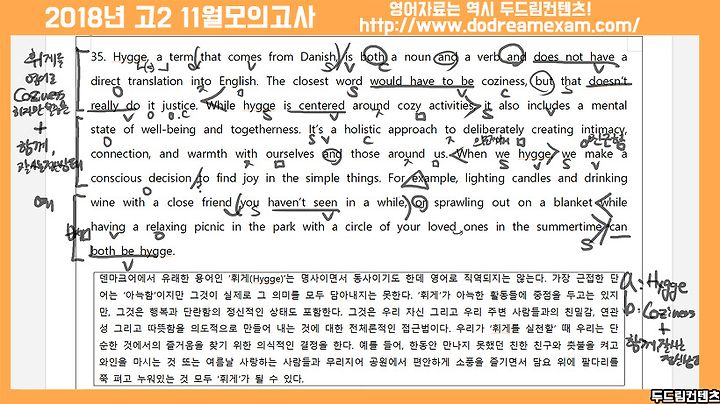 2018년 고2 11월모의고사
영어자료는 역시 두드림컨텐츠!
http://www.dodreamexam.com/
35. Hygge, a term that comes from Danish, is both a noun and a verb and does not have a
direct translation into English. The closest word would have to be coziness, but that doesn't
really do it justice. While hygge is centered around cozy activities, it also includes a mental
state of well-being and togetherness. It's a holistic approach to deliberately creating intimacy,
connection, and warmth with ourselves and those around us. When we hygge, we make a
conscious decision to find joy in the simple things. For example, lighting candles and drinking
wine with a close friend you haven't seen in a while, or sprawling out on a blanket while
having a relaxing picnic in the park with a circle of your loved ones in the summertime can
both be hygge.
휘게를
영어로
Coziness
+
함께,
예
친근함
덴마크어에서 유래한 용어인 '휘게(Hygge)'는 명사이면서 동사이기도 한데 영어로 직역되지는 않는다. 가장 근접한 단
어는 '아늑함'이지만 그것이 실제로 그 의미를 모두 담아내지는 못한다. '휘게'가 아늑한 활동들에 중점을 두고는 있지
만, 그것은 행복과 단란함의 정신적인 상태도 포함한다. 그것은 우리 자신 그리고 우리 주변 사람들과의 친밀감, 연관
성 그리고 따뜻함을 의도적으로 만들어 내는 것에 대한 전체론적인 접근법이다. 우리가 '휘게를 실천할' 때 우리는 단
순한 것에서의 즐거움을 찾기 위한 의식적인 결정을 한다. 예를 들어, 한동안 만나지 못했던 친한 친구와 촛불을 켜고
와인을 마시는 것 또는 여름날 사랑하는 사람들과 무리지어 공원에서 편안하게 소풍을 즐기면서 담요 위에 팔다리를
쭉 펴고 누워있는 것 모두 '휘게'가 될 수 있다.
a: Hygge
b: Coziness
+
함께 잘사는
두드림컨텐츠